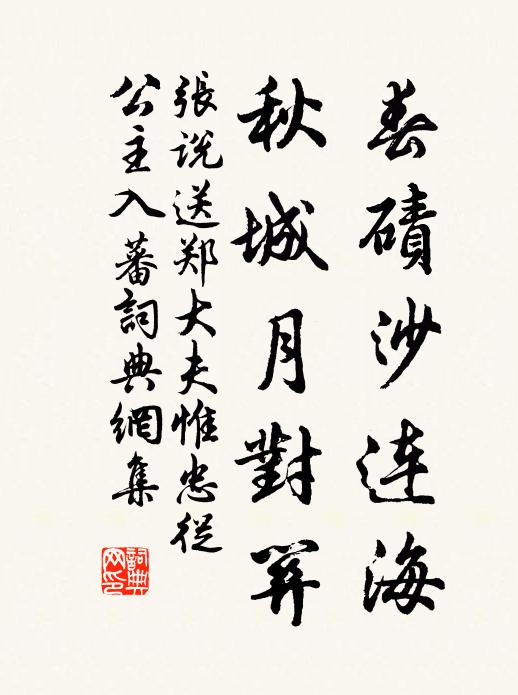 春磧沙连海
秋城月對關
張说送郑大夫惟忠從
公主入蕃詞典網集
詞典网印